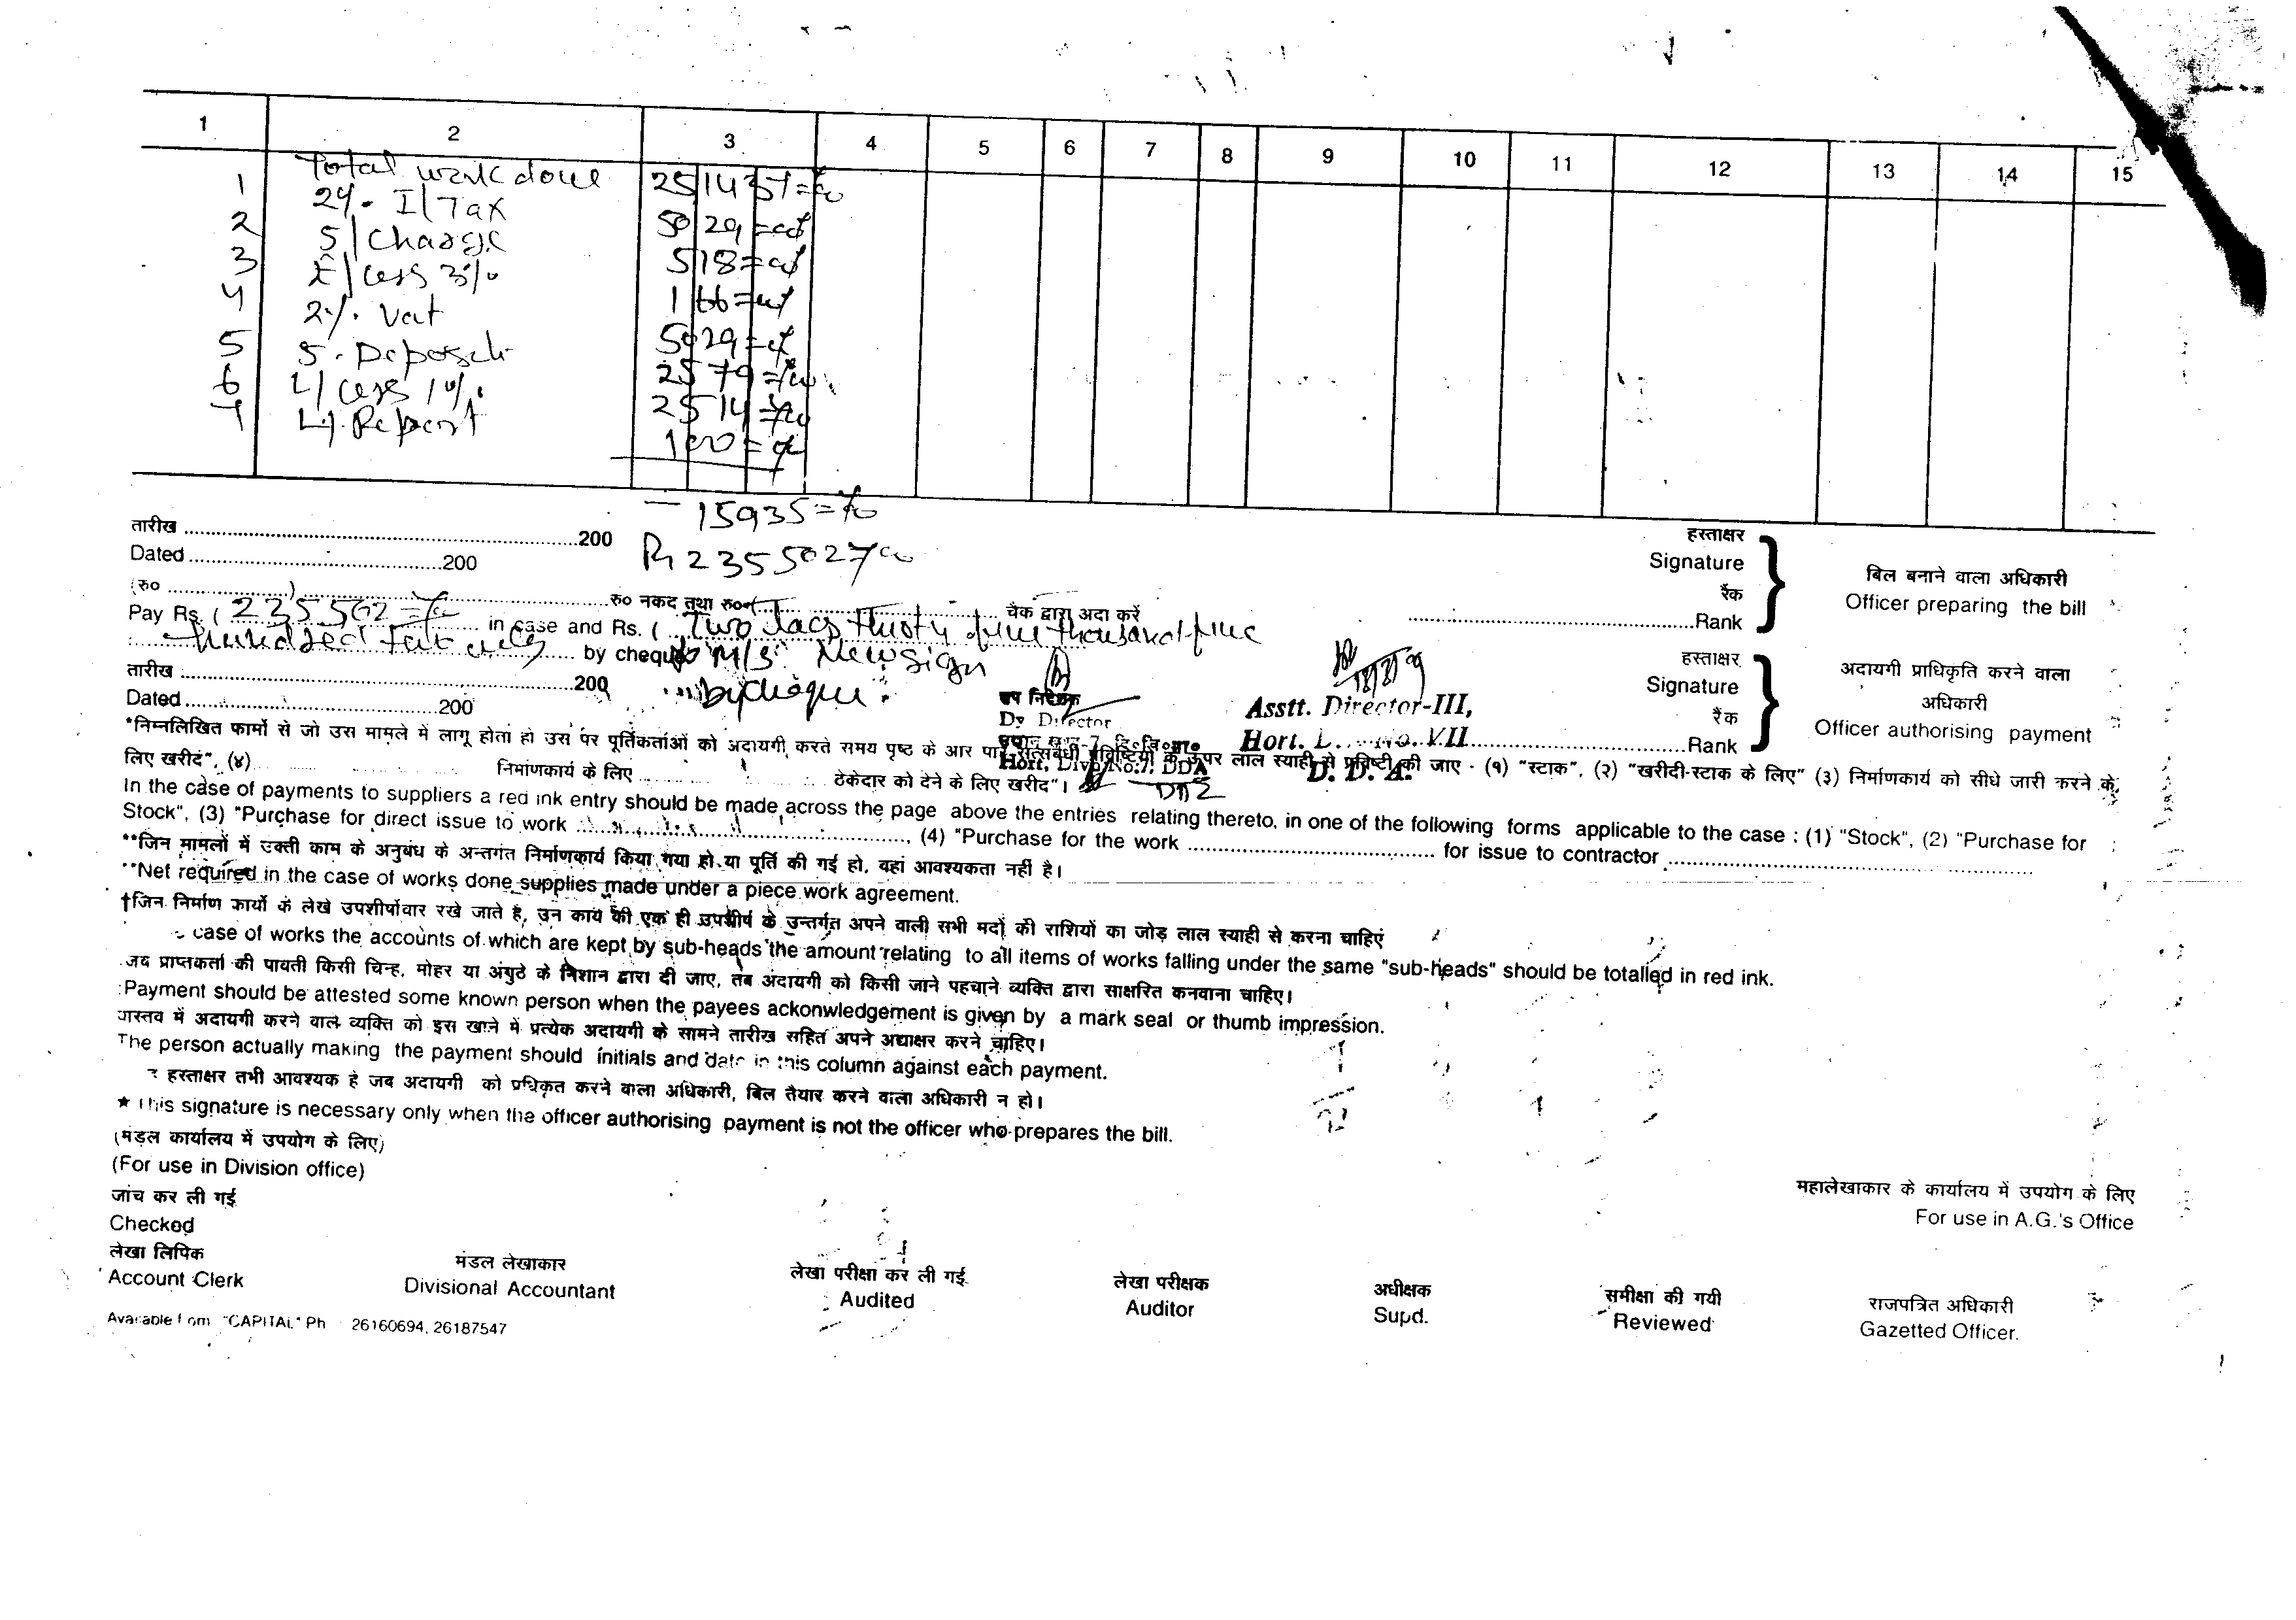 1 2 3 4 5 6 7 8 9 10 11 12 13 14 15
Total work done 251437=00
1 2%. I/Tax 5029=00
2 S/Charge 518=00
3 E/Cess 3% 166=00
4 2%. Vat 5029=00
5 S. Deposit 2579=00
6 L/Cess 1% 2514=00
7 L/. Report 100=00
- 15935=00
Rs 235502700
तारीख ..........200
Dated ..........200
(रु० .......... रु० नकद तथा रु० (.......... चैक द्वारा अदा करें
Pay Rs. ( 235502=00 in case and Rs. ( Two lacs thirty five thousand five
hundred two only by cheque to M/S. Newsign
by cheque.
तारीख ..........200
Dated ..........200
हस्ताक्षर
Signature
रैंक
..........Rank
बिल बनाने वाला अधिकारी
Officer preparing the bill
हस्ताक्षर
Signature
रैंक
..........Rank
अदायगी प्राधिकृति करने वाला
अधिकारी
Officer authorising payment
उप निदेशक
Dy Director
Hort. Divn No.7, DDA
Asstt. Director-III,
Hort. No. VII
D. D. A.
*निम्नलिखित फार्मो से जो उस मामले में लागू होता हो उस पर पूर्तिकर्ताओं को अदायगी करते समय पृष्ठ के आर पार तत्सबंधी प्रविष्टियों के ऊपर लाल स्याही से प्रविष्टी की जाए - (१) "स्टाक", (२) "खरीदी-स्टाक के लिए" (३) निर्माणकार्य को सीधे जारी करने के
लिए खरीद", (४) .......... निर्माणकार्य के लिए .......... ठेकेदार को देने के लिए खरीद"।
In the case of payments to suppliers a red ink entry should be made across the page above the entries relating thereto, in one of the following forms applicable to the case : (1) "Stock", (2) "Purchase for
Stock", (3) "Purchase for direct issue to work .........., (4) "Purchase for the work .......... for issue to contractor ..........
**जिन मामलों में उक्ती काम के अनुबंध के अन्तर्गत निर्माणकार्य किया गया हो या पूर्ति की गई हो, वहां आवश्यकता नहीं है।
**Net required in the case of works done supplies made under a piece work agreement.
†जिन निर्माण कार्यो के लेखे उपशीर्षोवार रखे जाते है, उन काय की एक ही उपशीर्ष के उन्तर्गत अपने वाली सभी मदों की राशियों का जोड़ लाल स्याही से करना चाहिएं
case of works the accounts of which are kept by sub-heads the amount relating to all items of works falling under the same "sub-heads" should be totalled in red ink.
जब प्राप्तकर्ता की पावती किसी चिन्ह, मोहर या अंगुठे के निशान द्वारा दी जाए, तब अदायगी को किसी जाने पहचाने व्यक्ति द्वारा साक्षरित कनवाना चाहिए।
:Payment should be attested some known person when the payees ackonwledgement is given by a mark seal or thumb impression.
वास्तव में अदायगी करने वाले व्यक्ति को इस खाने में प्रत्येक अदायगी के सामने तारीख सहित अपने अद्याक्षर करने चाहिए।
The person actually making the payment should initials and date in this column against each payment.
हस्ताक्षर तभी आवश्यक है जब अदायगी को प्रधिकृत करने वाला अधिकारी, बिल तैयार करने वाला अधिकारी न हो।
★ This signature is necessary only when the officer authorising payment is not the officer who prepares the bill.
(मंडल कार्यालय में उपयोग के लिए)
(For use in Division office)
जांच कर ली गई
Checked
महालेखाकार के कार्यालय में उपयोग के लिए
For use in A.G.'s Office
लेखा लिपिक मंडल लेखाकार लेखा परीक्षा कर ली गई लेखा परीक्षक अधीक्षक समीक्षा की गयी राजपत्रित अधिकारी
Account Clerk Divisional Accountant Audited Auditor Supd. Reviewed Gazetted Officer.
Available from "CAPITAL" Ph 26160694, 26187547